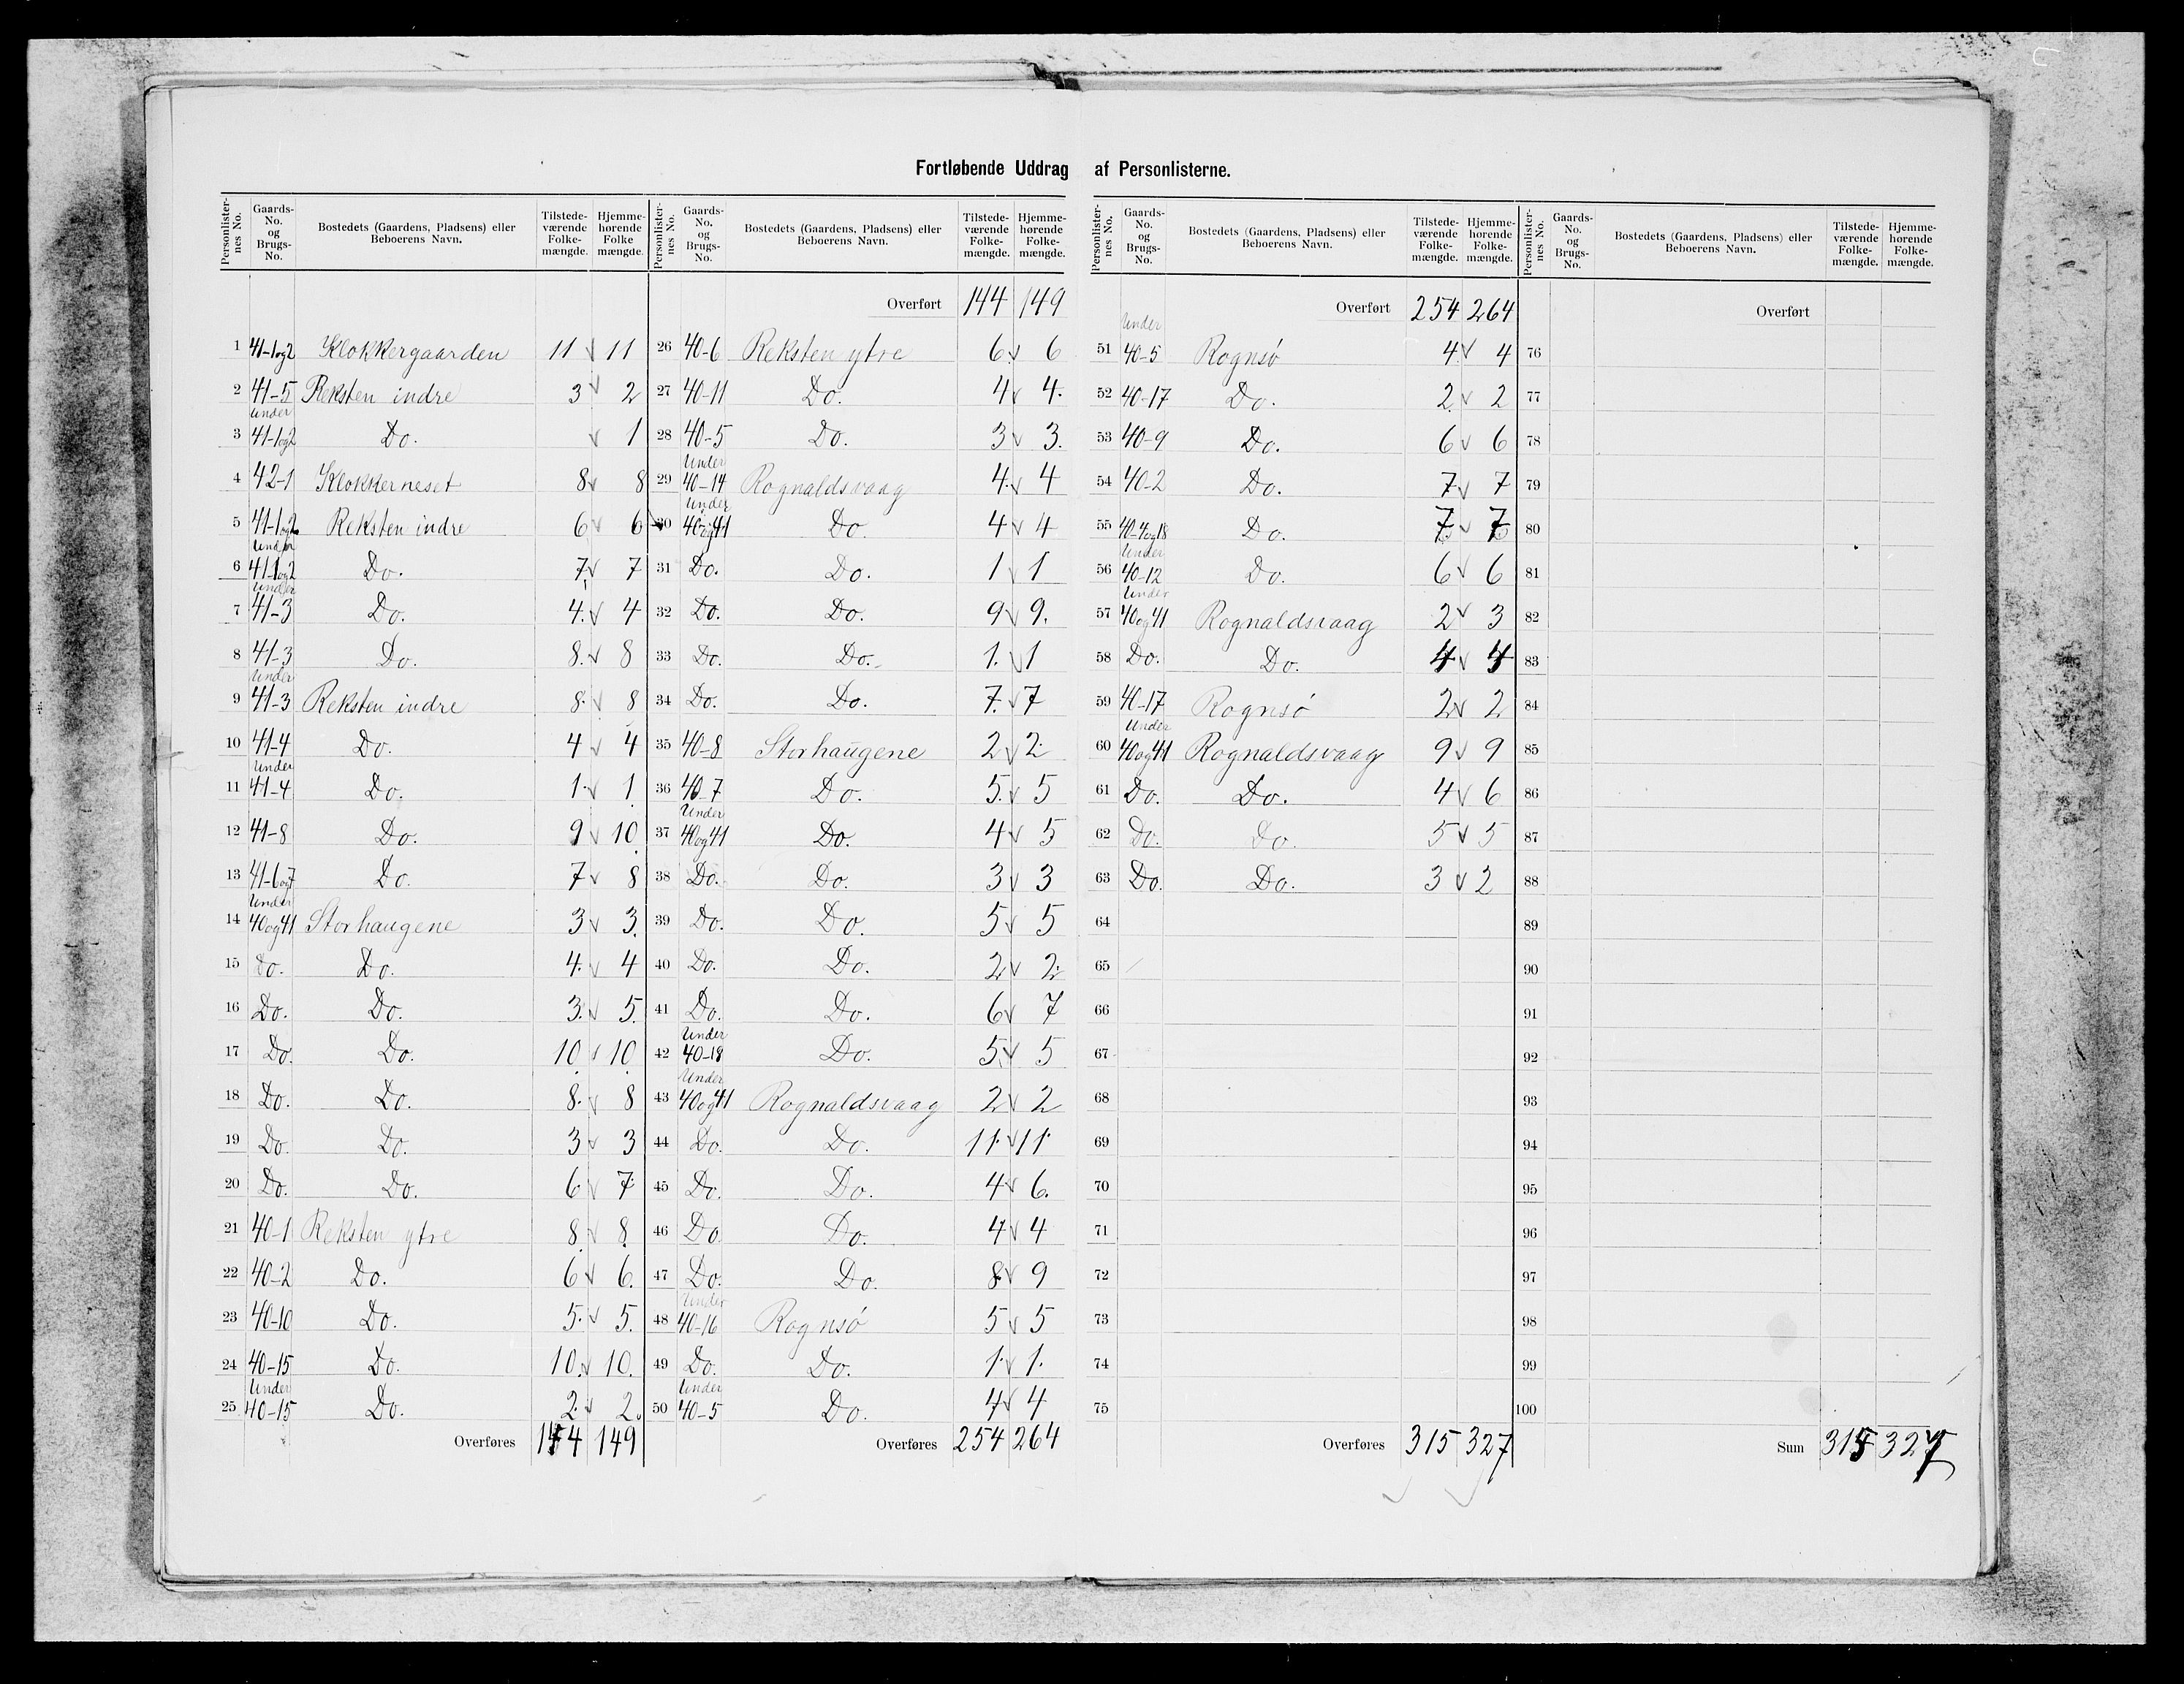 Fortløbende Uddrag af Personlisterne.
Personlister-nes No. Gaards-No. og Brugs-No. Bostedets (Gaardens, Pladsens) eller Beboerens Navn. Tilstede-værende Folke-mængde. Hjemme-hørende Folke mængde.
1 41-1og2 Klokkergaarden 11 v 11
2 41-5 Reksten indre 3 v 2
3 Under 41-1og2 Do. v 1
4 42-1 Klokkerneset 8 v 8
5 41-1og2 Reksten indre 6 v 6
6 Under 41-1og2 Do. 7 v 7
7 Under 41-3 Do. 4. v 4
8 41-3 Do. 8. v 8
9 Under 41-3 Reksten indre 8. v 8
10 41-4 Do. 4 v 4
11 Under 41-4 Do. 1. v 1
12 41-8 Do. 9 v 10
13 41-6og7 Do. 7 v 8
14 Under 40og41 Storhaugene 3 v 3.
15 Do. Do. 4. v 4
16 Do. Do. 3. v 5.
17 Do. Do. 10 v 10
18 Do. Do. 8. v 8
19 Do. Do. 3 v 3
20 Do. Do. 6 v 7
21 40-1 Reksten ytre 8 v 8
22 40-2 Do. 6 v 6.
23 40-10 Do. 5. v 5.
24 40-15 Do. 10. v 10.
25 Under 40-15 Do. 2. v 2.
Overføres 144 149
Personlister-nes No. Gaards-No. og Brugs-No. Bostedets (Gaardens, Pladsens) eller Beboerens Navn. Tilstede-værende Folke-mængde. Hjemme-hørende Folke-mængde.
Overført 144 149
26 40-6 Reksten ytre 6. v 6
27 40-11 Do. 4 v 4.
28 40-5 Do. 3 v 3.
29 Under 40-14 Rognaldsvaag 4. v 4
30 Under 40og41 Do. 4 v 4
31 Do. Do. 1 v 1
32 Do. Do. 9 v 9.
33 Do. Do. 1. v 1
34 Do. Do. 7. v 7
35 40-8 Storhaugene 2 v 2.
36 40-7 Do. 5. v 5
37 Under 40og41 Do. 4 v 5
38 Do. Do. 3 v 3
39 Do. Do. 5 v 5
40 Do. Do. 2 v 2.
41 Do. Do. 6 v 7
42 Under 40-18 Do. 5 v 5
43 Under 40og41 Rognaldsvaag 2 v 2
44 Do. Do. 11. v 11.
45 Do. Do. 4 v 6.
46 Do. Do. 4 v 4
47 Do. Do. 8 v 9
48 Under 40-16 Rognsø 5 v 5
49 Do. Do. 1. v 1.
50 Under 40-5 Do. 4 v 4
Overføres 254 264
Personlister-nes No. Gaards-No. og Brugs-No. Bostedets (Gaardens, Pladsens) eller Beboerens Navn. Tilstede-værende Folke-mængde. Hjemme-hørende Folke-mængde.
Overført 254 264
51 Under 40-5 Rognsø 4 v 4
52 40-17 Do. 2. v 2
53 40-9 Do. 6 v 6
54 40-2 Do. 7 v 7
55 40-4og18 Do. 7 v 7
56 Under 40-12 Do. 6 v 6
57 Under 40og41 Rognaldsvaag 2 v 3
58 Do. Do. 4 v 4
59 40-17 Rognsø 2 v 2
60 Under 40og41 Rognaldsvaag 9 v 9
61 Do. Do. 4 v 6
62 Do. Do. 5 v 5
63 Do. Do. 3 v 2
64
65
66
67
68
69
70
71
72
73
74
75
Overføres 315 327
Personlister-nes No. Gaards-No. og Brugs-No. Bostedets (Gaardens, Pladsens) eller Beboerens Navn. Tilstede-værende Folke-mængde. Hjemme-hørende Folke-mængde.
Overført
76
77
78
79
80
81
82
83
84
85
86
87
88
89
90
91
92
93
94
95
96
97
98
99
100
Sum 315 327